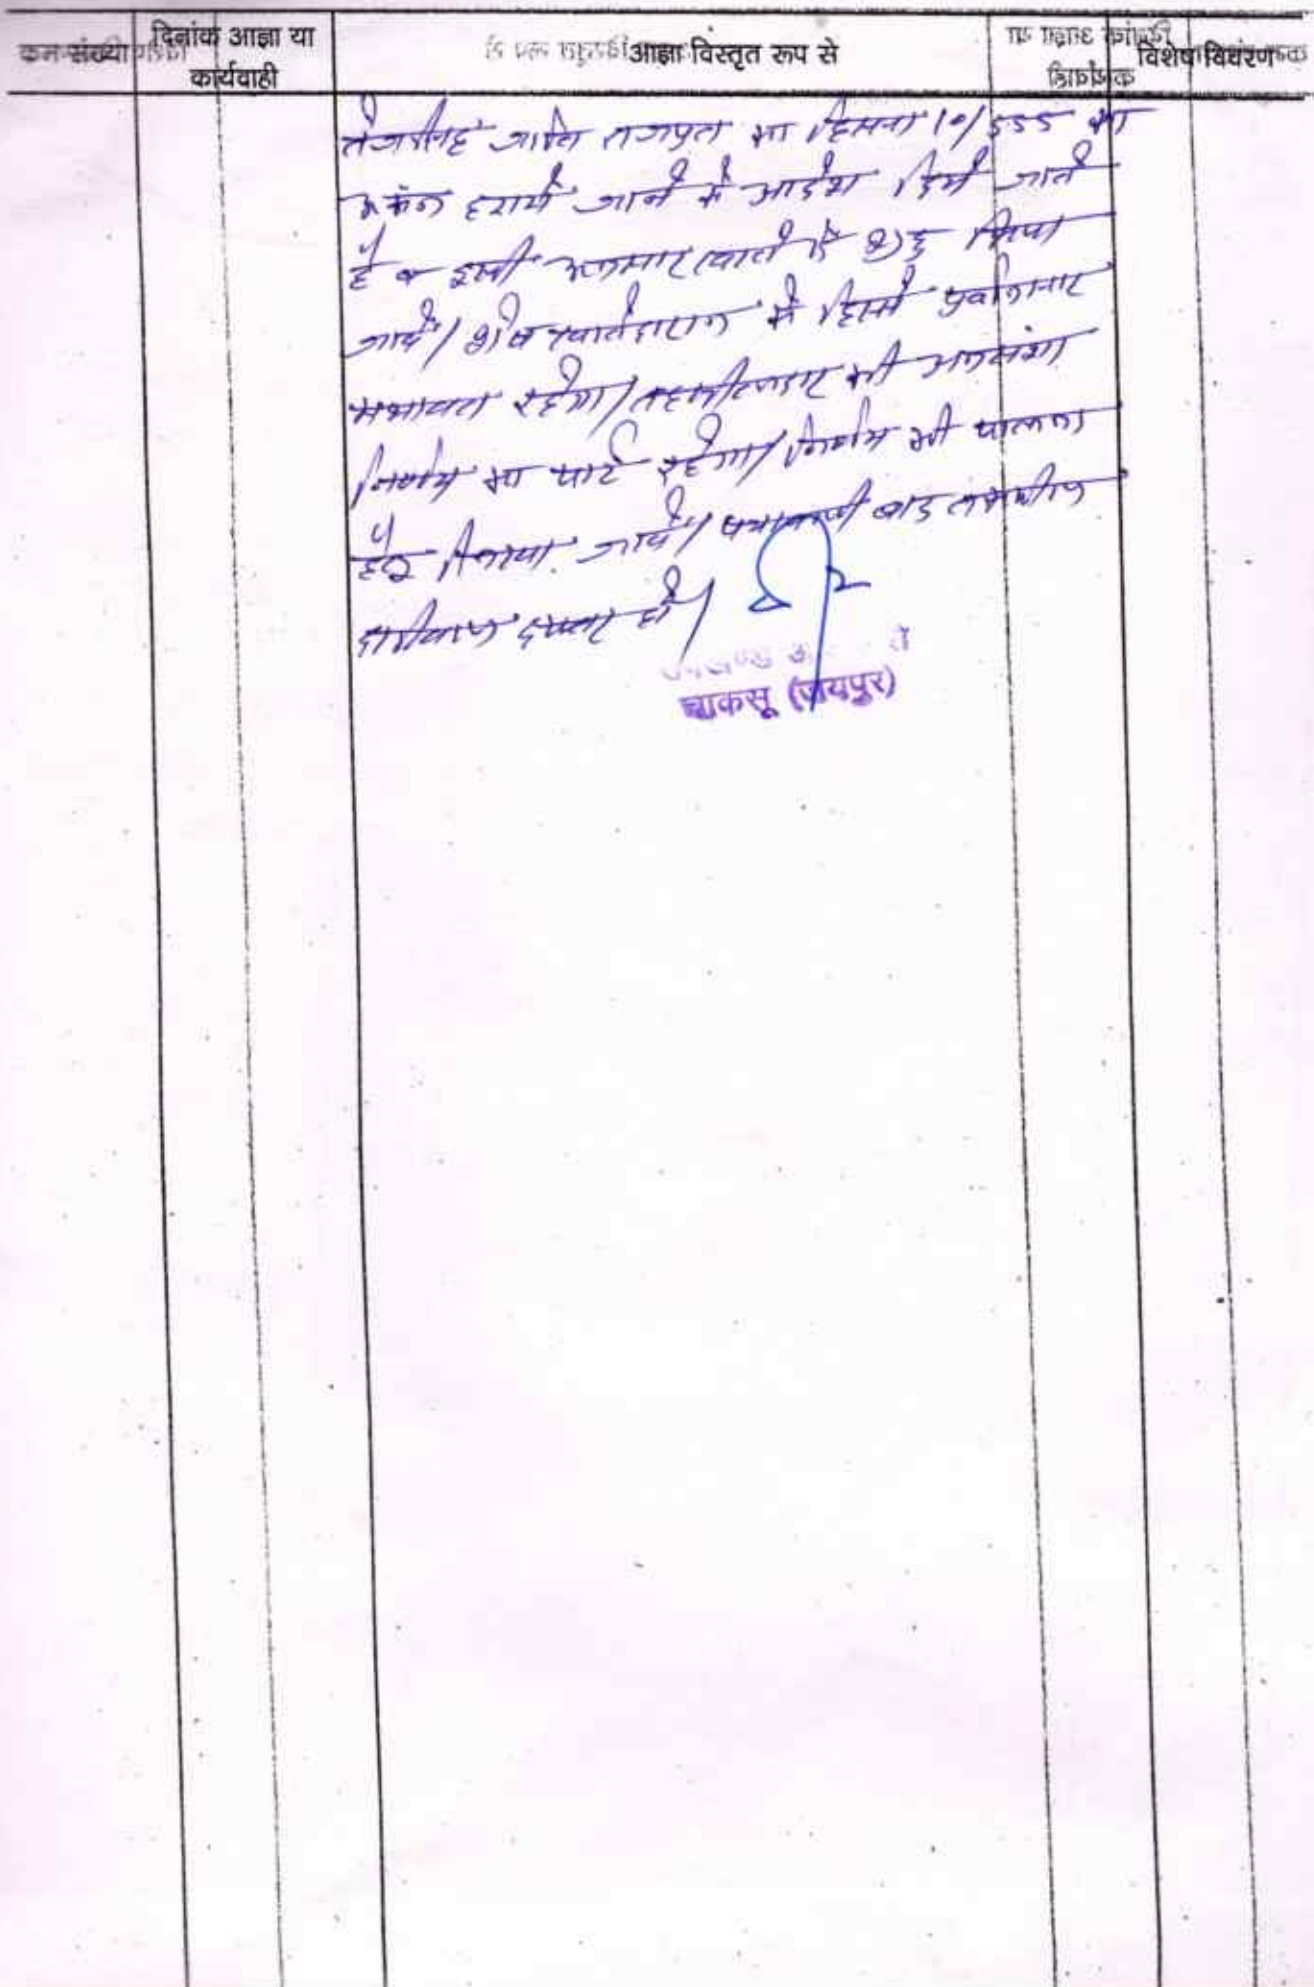 कम संख्या दिनांक आज्ञा या कार्यवाही आज्ञा विस्तृत रूप से विशेष विवरण
तेजसिंह जाति राजपूत का हिस्सा 10/555 का
अंकन हटाये जाने के आदेश दिये जाते
है व इसी अनुसार खाते को शुद्ध किया
जावे / शेष खातेदारान के हिस्से पूर्वानुसार
यथावत रहेगा / तहसीलदार की अनुशंषा
निर्णय का पार्ट रहेगा / निर्णय की पालना
हेतु लिखा जावे / पत्रावली बाद तकमील
दाखिल दफ्तर हो /
चाकसू (जयपुर)